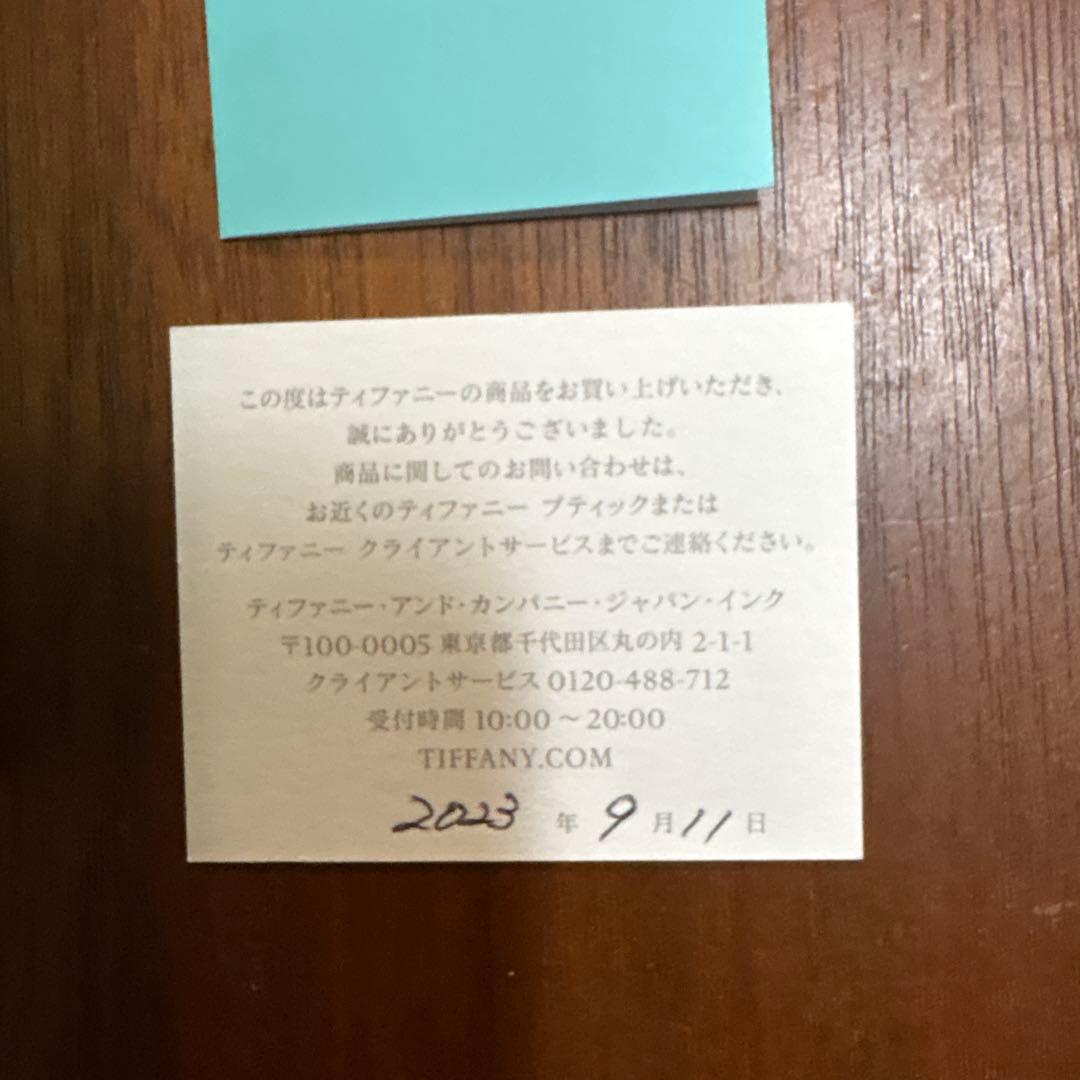 この度はティファニーの商品をお買い上げいただき、
誠にありがとうございました。
商品に関してのお問い合わせは、
お近くのティファニー ブティックまたは
ティファニー クライアントサービスまでご連絡ください。
ティファニー・アンド・カンパニー・ジャパン・インク
〒100-0005 東京都千代田区丸の内 2-1-1
クライアントサービス 0120-488-712
受付時間 10:00 ～ 20:00
TIFFANY.COM
2023 年 9 月 11 日